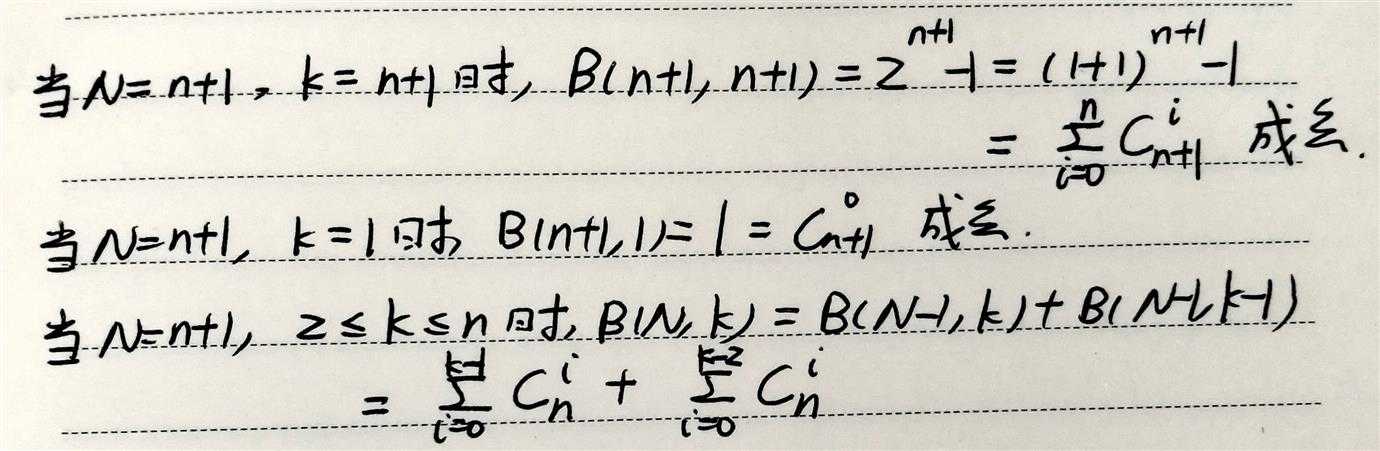 当N=n+1, k=n+1时, B(n+1, n+1) = 2^{n+1}-1 = (1+1)^{n+1}-1
= \sum_{i=0}^{n} C_{n+1}^{i} 成立.
当N=n+1, k=1时, B(n+1,1)=1=C_{n+1}^{0} 成立.
当N=n+1, 2≤k≤n时, B(N,k)=B(N-1,k)+B(N-1,k-1)
= \sum_{i=0}^{k-1} C_{n}^{i} + \sum_{i=0}^{k-2} C_{n}^{i}